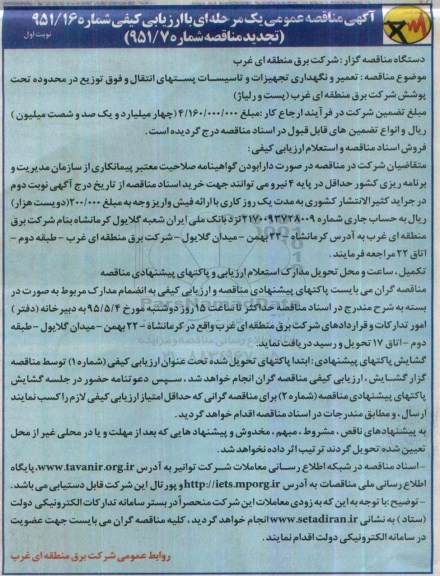 آگهی مناقصه عمومی یک مرحله ای با ارزیابی کیفی شماره ۹۵۱/۱۶
(تجدید مناقصه شماره ۹۵۱/۷)
نوبت اول
دستگاه مناقصه گزار: شرکت برق منطقه ای غرب
موضوع مناقصه: تعمیر و نگهداری تجهیزات و تاسیسات پستهای انتقال و فوق توزیع در محدوده تحت
پوشش شرکت برق منطقه ای غرب (پست و رلیاژ)
مبلغ تضمین شرکت در فرآیند ارجاع کار: مبلغ ۴/۱۶۰/۰۰۰/۰۰۰ (چهار میلیارد و یک صد و شصت میلیون)
ریال و انواع تضمین های قابل قبول در اسناد مناقصه درج گردیده است.
فروش اسناد مناقصه و استعلام ارزیابی کیفی:
متقاضیان شرکت در مناقصه در صورت دارا بودن گواهینامه صلاحیت معتبر پیمانکاری از سازمان مدیریت و
برنامه ریزی کشور حداقل در پایه ۴ نیرو می توانند جهت خرید اسناد مناقصه از تاریخ درج آگهی نوبت دوم
در جراید کثیر الانتشار کشوری به مدت یک روز کاری با ارائه فیش واریز وجه به مبلغ ۲۰۰/۰۰۰ (دویست هزار)
ریال به حساب جاری شماره ۲۱۷۰۰۹۳۷۲۸۰۰۹ نزد بانک ملی ایران شعبه گلایول کرمانشاه بنام شرکت برق
منطقه ای غرب به آدرس کرمانشاه - ۲۲ بهمن - میدان گلایول - شرکت برق منطقه ای غرب - طبقه دوم -
اتاق ۲۲ مراجعه فرمایند.
تکمیل، ساعت و محل تحویل مدارک استعلام ارزیابی و پاکتهای پیشنهادی مناقصه
مناقصه گران می بایست پاکتهای پیشنهادی مناقصه و ارزیابی کیفی به انضمام مدارک مربوط به صورت در
بسته به شرح مندرج در اسناد مناقصه حداکثر تا ساعت ۱۵ روز دوشنبه مورخ ۹۵/۵/۴ به دبیرخانه (دفتر)
امور تدارکات و قراردادهای شرکت برق منطقه ای غرب واقع در کرمانشاه - ۲۲ بهمن - میدان گلایول - طبقه
دوم - اتاق ۱۷ تحویل و رسید دریافت نماید.
گشایش پاکتهای پیشنهادی: ابتدا پاکتهای تحویل شده تحت عنوان ارزیابی کیفی (شماره ۱) توسط مناقصه
گزار گشایش، ارزیابی کیفی مناقصه گران انجام خواهد شد، سپس دعوتنامه حضور در جلسه گشایش
پاکتهای پیشنهادی مناقصه (شماره ۲) برای مناقصه گرانی که حداقل امتیاز ارزیابی کیفی لازم را کسب نمایند
ارسال، و مطابق مندرجات در اسناد مناقصه اقدام خواهد گردید.
به پیشنهادهای ناقص، مشروط، مبهم، مخدوش و پیشنهادهایی که بعد از مهلت و یا در محلی غیر از محل
تعیین شده تحویل گردند ترتیب اثر داده نخواهد شد.
- اسناد مناقصه در شبکه اطلاع رسانی معاملات شرکت توانیر به آدرس www.tavanir.org.ir، پایگاه
اطلاع رسانی ملی مناقصات به آدرس http://iets.mporg.ir و پورتال این شرکت قابل دستیابی می باشد.
- توضیح: با توجه به این که به زودی معاملات این شرکت منحصراً در بستر سامانه تدارکات الکترونیکی دولت
(ستاد) به نشانی www.setadiran.ir انجام خواهد گردید، کلیه مناقصه گران می بایست جهت عضویت
در سامانه الکترونیکی دولت اقدام نمایند.
روابط عمومی شرکت برق منطقه ای غرب